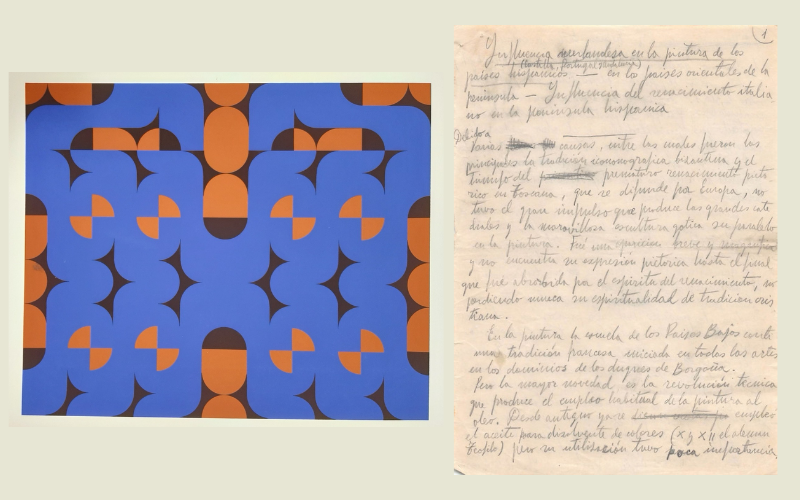 1
Influencia neerlandesa en la pintura de los
(Castilla, Portugal, Cataluña)
países hispánicos — en los países orientales de la
península — Influencia del renacimiento italia
no en la península hispánica
Debido a
varias causas, entre las cuales fueron las
principales la tradición iconografica bizantina y el
triunfo del prematuro renacimiento pictó
rico en Toscana, que se difunde por Europa, no
tuvo el gran impulso que produce las grandes cate
drales y la maravillosa escultura gotica su paralelo
en la pintura. Fué una aparición breve y
y no encuentra su expresión pictorica hasta el final
que fue absorbida por el espiritu del renacimiento, no
perdiendo nunca su espiritualidad de tradicion cris
tiana.
En la pintura la escuela de los Países Bajos
una tradición francesa iniciada en todas las artes
en los dominios de los duques de Borgoña.
Pero la mayor novedad es la revolución técnica
que produce el empleo habitual de la pintura al
óleo. Desde antiguo empleo
el aceite para disolvente de colores (X y XII el aleman
Teofilo) pero su utilización tuvo poca